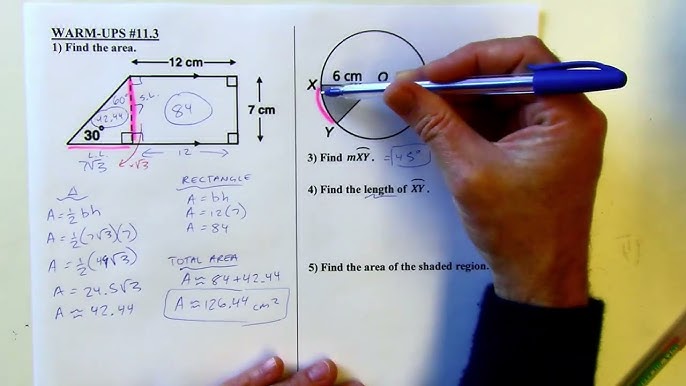 WARM-UPS #11.3
1) Find the area.
12 cm
60°
S.L.
7
42.44
84
7 cm
30°
L.L.
7√3
12
Δ
A = ½ bh
A = ½ (7√3)(7)
A = ½ (49√3)
A = 24.5√3
A ≈ 42.44
RECTANGLE
A = bh
A = 12(7)
A = 84
TOTAL AREA
A ≈ 84 + 42.44
A ≈ 126.44 cm²
X
6 cm
O
Y
3) Find mXY. = 45°
4) Find the length of XY.
5) Find the area of the shaded region.